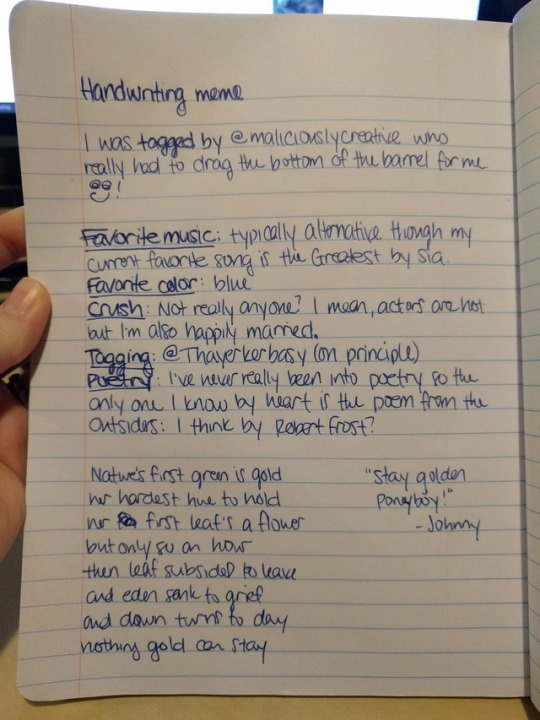 Handwriting meme
I was tagged by @maliciouslycreative who
really had to drag the bottom of the barrel for me
!
Favorite music: typically alternative though my
current favorite song is the Greatest by Sia.
Favorite color: blue
Crush: Not really anyone? I mean, actors are hot
but I'm also happily married.
Tagging: @Thayerkerbasy (on principle)
Poetry: I've never really been into poetry so the
only one I know by heart is the poem from the
Outsiders: I think by Robert Frost?
Nature's first green is gold
her hardest hue to hold
her first leaf's a flower
but only so an hour
then leaf subsided to leave
and eden sank to grief
and dawn turns to day
nothing gold can stay
"Stay golden
Poneyboy!"
- Johnny